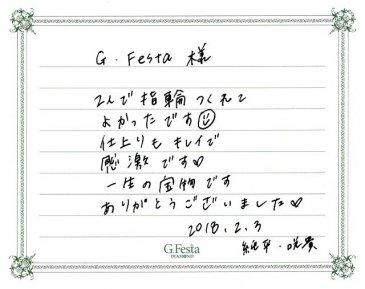 G.Festa 様
2人で指輪つくれて
よかったです
仕上りもキレイで
感激です♡
一生の宝物です
ありがとうございました♡
2018.2.3
G.Festa
DIAMOND